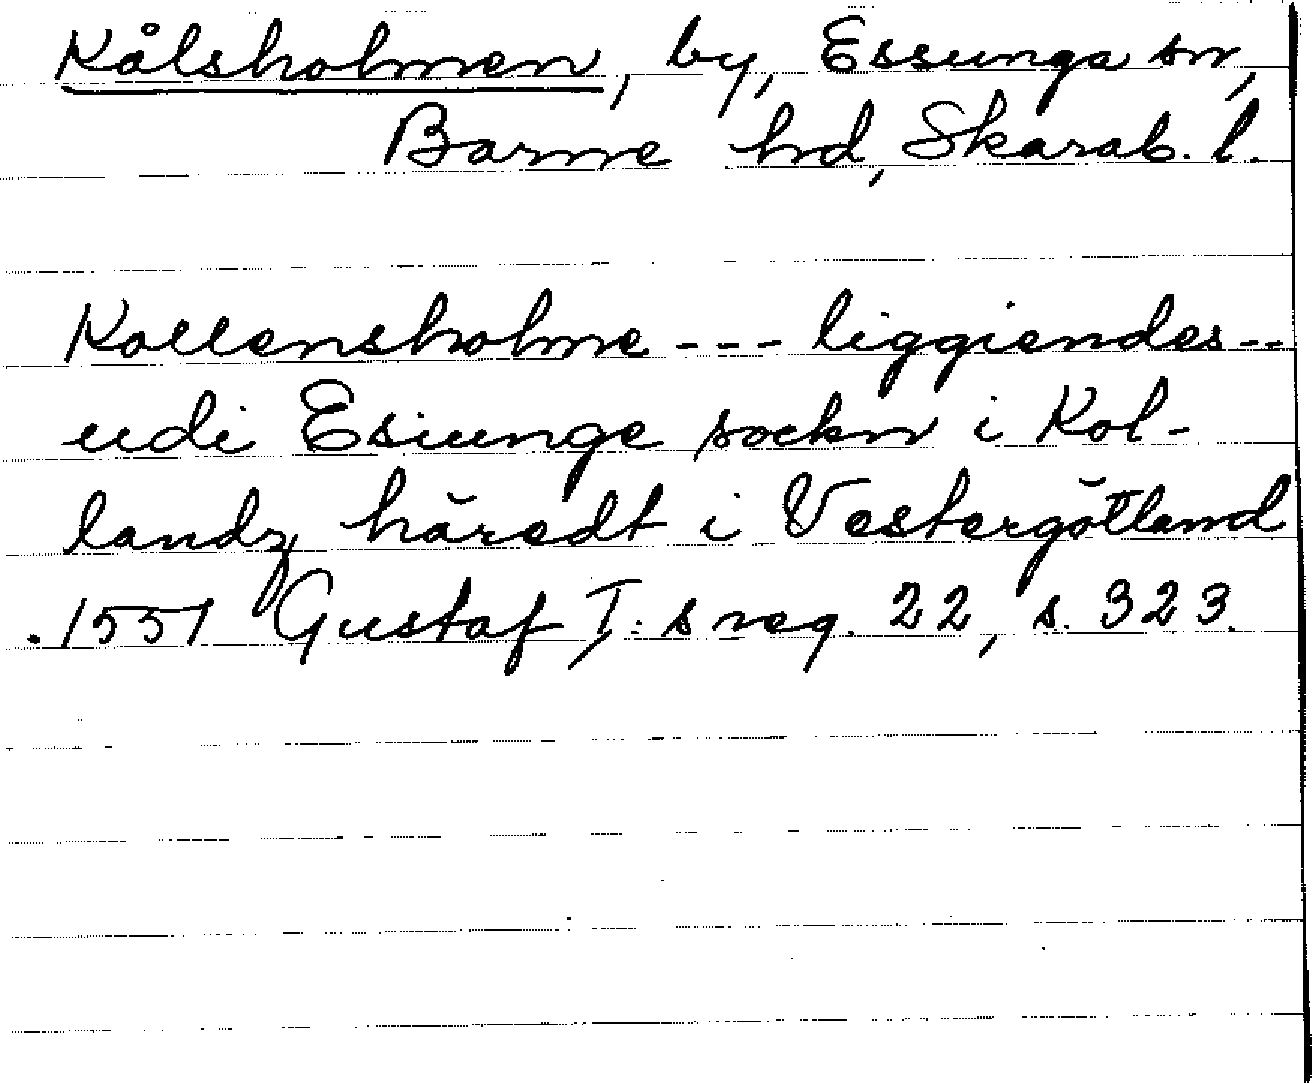 Kålsholmen, by, Essunga sn,
Barne hd, Skarab. l.
Kollensholme --- liggiendes --
udi Esiunge sockn i Kol-
landz häredt i Vestergötland
1551 Gustaf I:s reg. 22, s. 323.